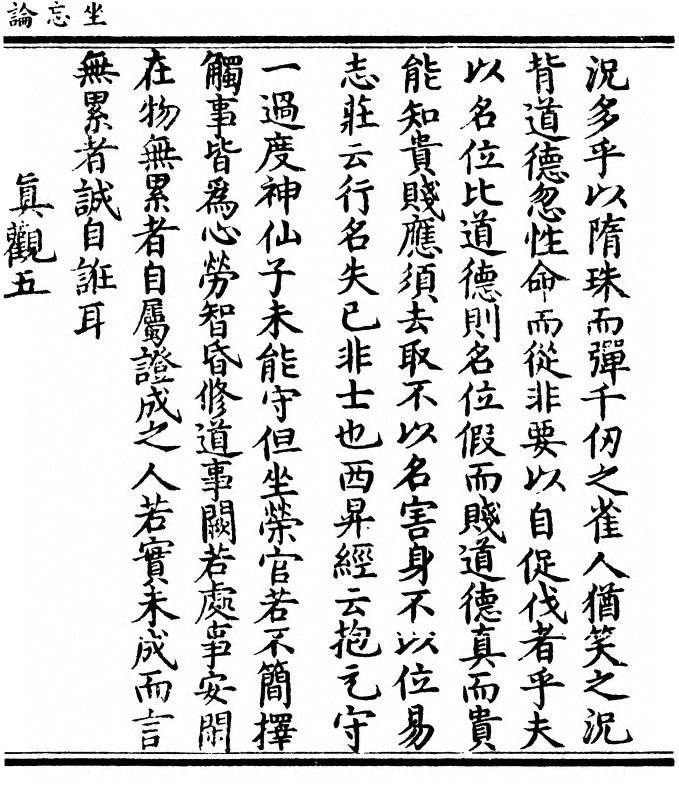 坐忘論
況多乎以隋珠而彈千仞之雀人猶笑之況
背道德忽性命而從非要以自促伐者乎夫
以名位比道德則名位假而賤道德真而貴
能知貴賤應須去取不以名害身不以位易
志莊云行名失己非士也西昇經云抱元守
一過度神仙子未能守但坐榮官若不簡擇
觸事皆為心勞智昏修道事闕若處事安閑
在物無累者自屬證成之人若實未成而言
無累者誠自誑耳
真觀五